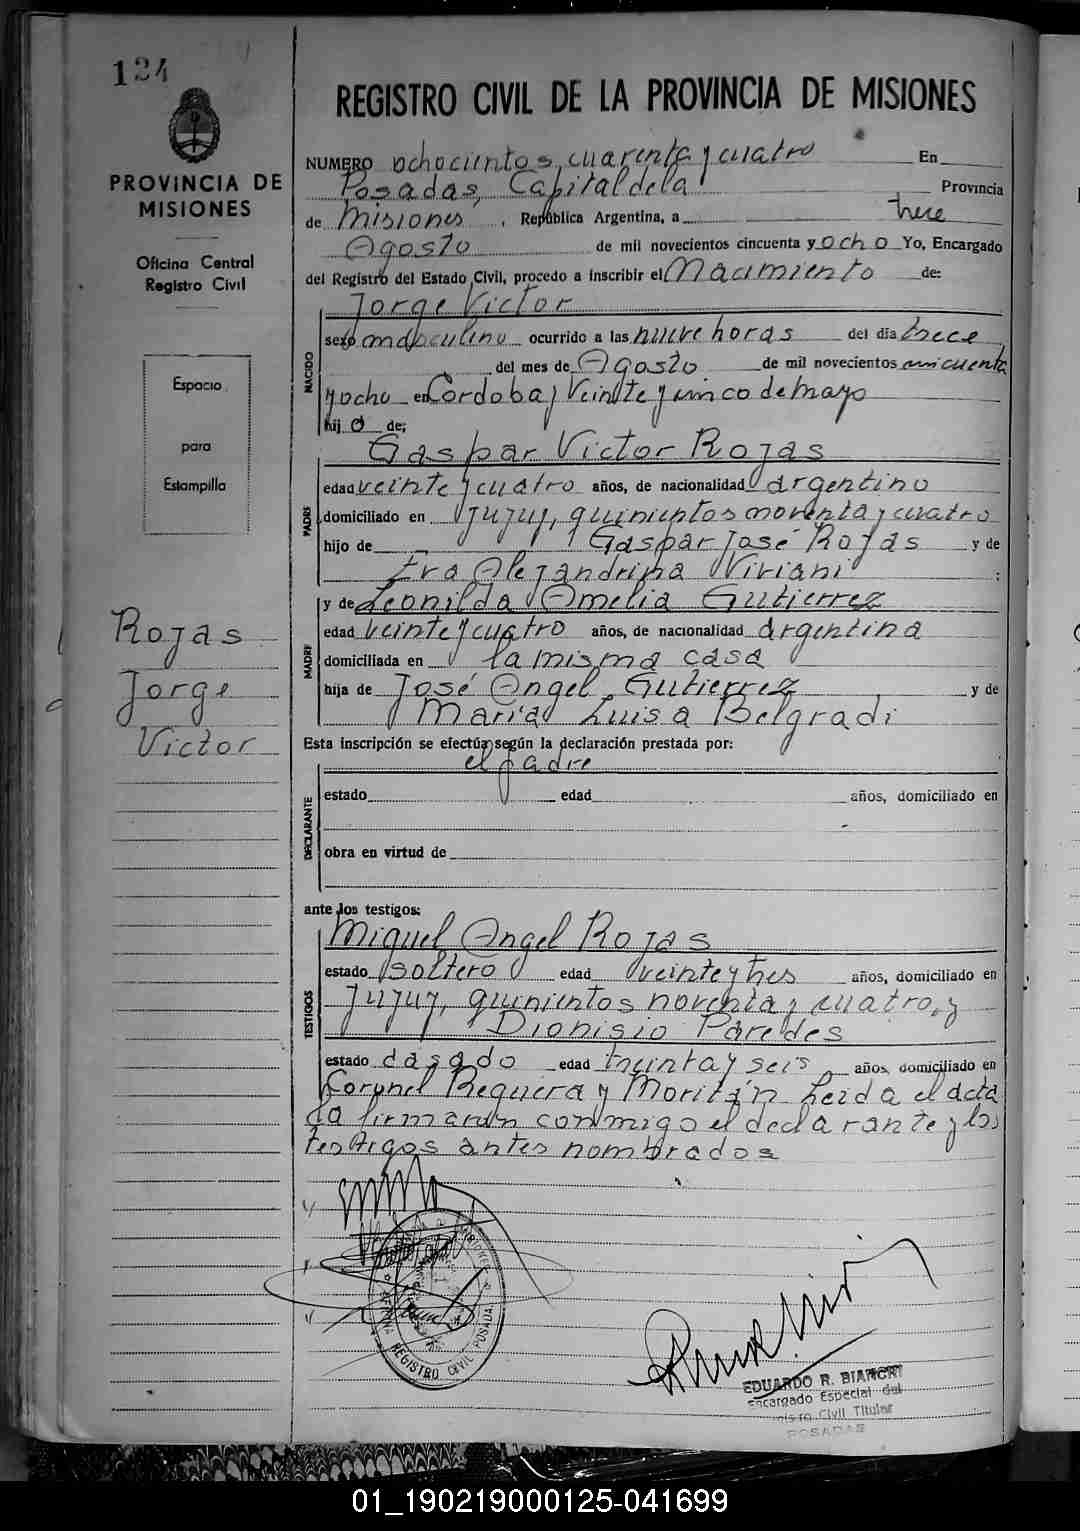 124
PROVINCIA DE
MISIONES
Oficina Central
Registro Civil
Espacio
para
Estampilla
Rojas
Jorge
Victor
REGISTRO CIVIL DE LA PROVINCIA DE MISIONES
NUMERO ochocientos cuarenta y cuatro En
Posadas, Capital de la Provincia
de Misiones, República Argentina, a trece
Agosto de mil novecientos cincuenta y ocho Yo, Encargado
del Registro del Estado Civil, procedo a inscribir el Nacimiento de:
Jorge Victor
NACIDO
sexo masculino ocurrido a las nueve horas del día trece
del mes de Agosto de mil novecientos cincuenta
y ocho en Cordoba y Veinte y cinco de mayo
hijo de;
Gaspar Victor Rojas
PADRE
edad veinte y cuatro años, de nacionalidad argentino
domiciliado en Jujuy, quinientos noventa y cuatro
hijo de Gaspar José Rojas y de
Eva Alejandrina Viviani :
y de Leonilda Amelia Gutierrez
MADRE
edad veinte y cuatro años, de nacionalidad argentina
domiciliada en la misma casa
hija de José Angel Gutierrez y de
Maria Luisa Belgradi
Esta inscripción se efectúa según la declaración prestada por:
el padre
DECLARANTE
estado edad años, domiciliado en
obra en virtud de
ante los testigos:
Miguel Angel Rojas
TESTIGOS
estado soltero edad veinte y tres años, domiciliado en
Jujuy, quinientos noventa y cuatro, y
Dionisio Paredes
estado casado edad treinta y seis años, domiciliado en
Coronel Reguera y Moritán Leida el acta
la firmaran conmigo el declarante y los
testigos antes nombrados
REGISTRO CIVIL POSADAS
EDUARDO R. BIANCHI
Encargado Especial del
Registro Civil Titular
POSADAS
01_190219000125-041699